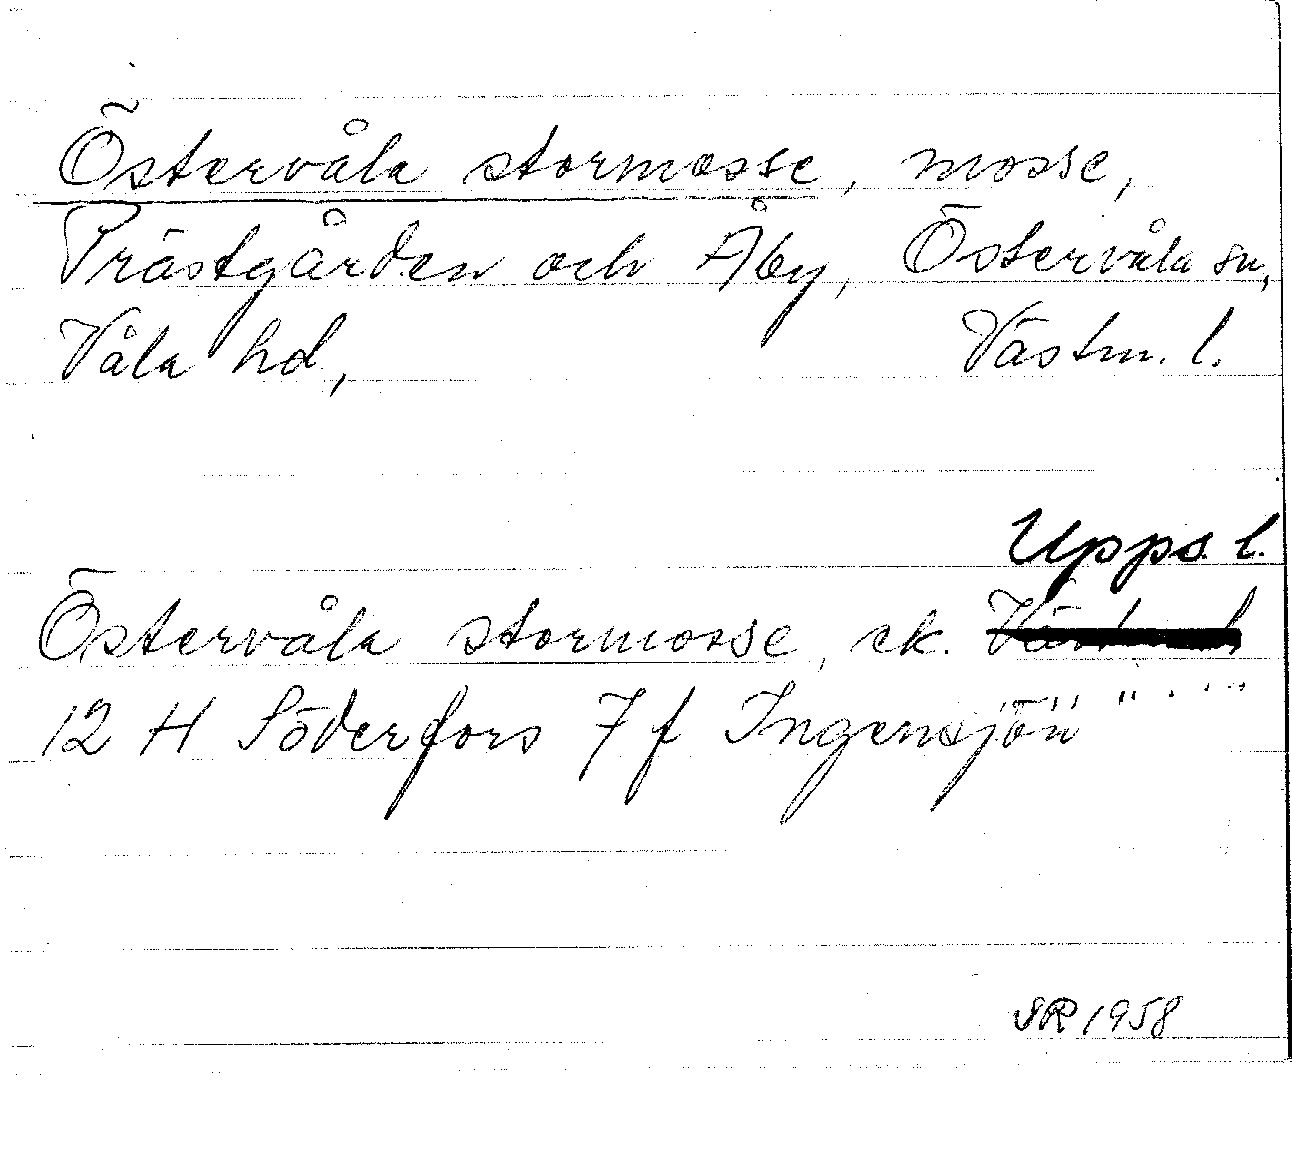 Östervåla stormosse, mosse,
Prästgården och Åby, Östervåla sn,
Våla hd, Västm. l.
Upps. l.
Östervåla stormosse, ek.
12 H Söderfors 7 f Ingensjön
SR 1958